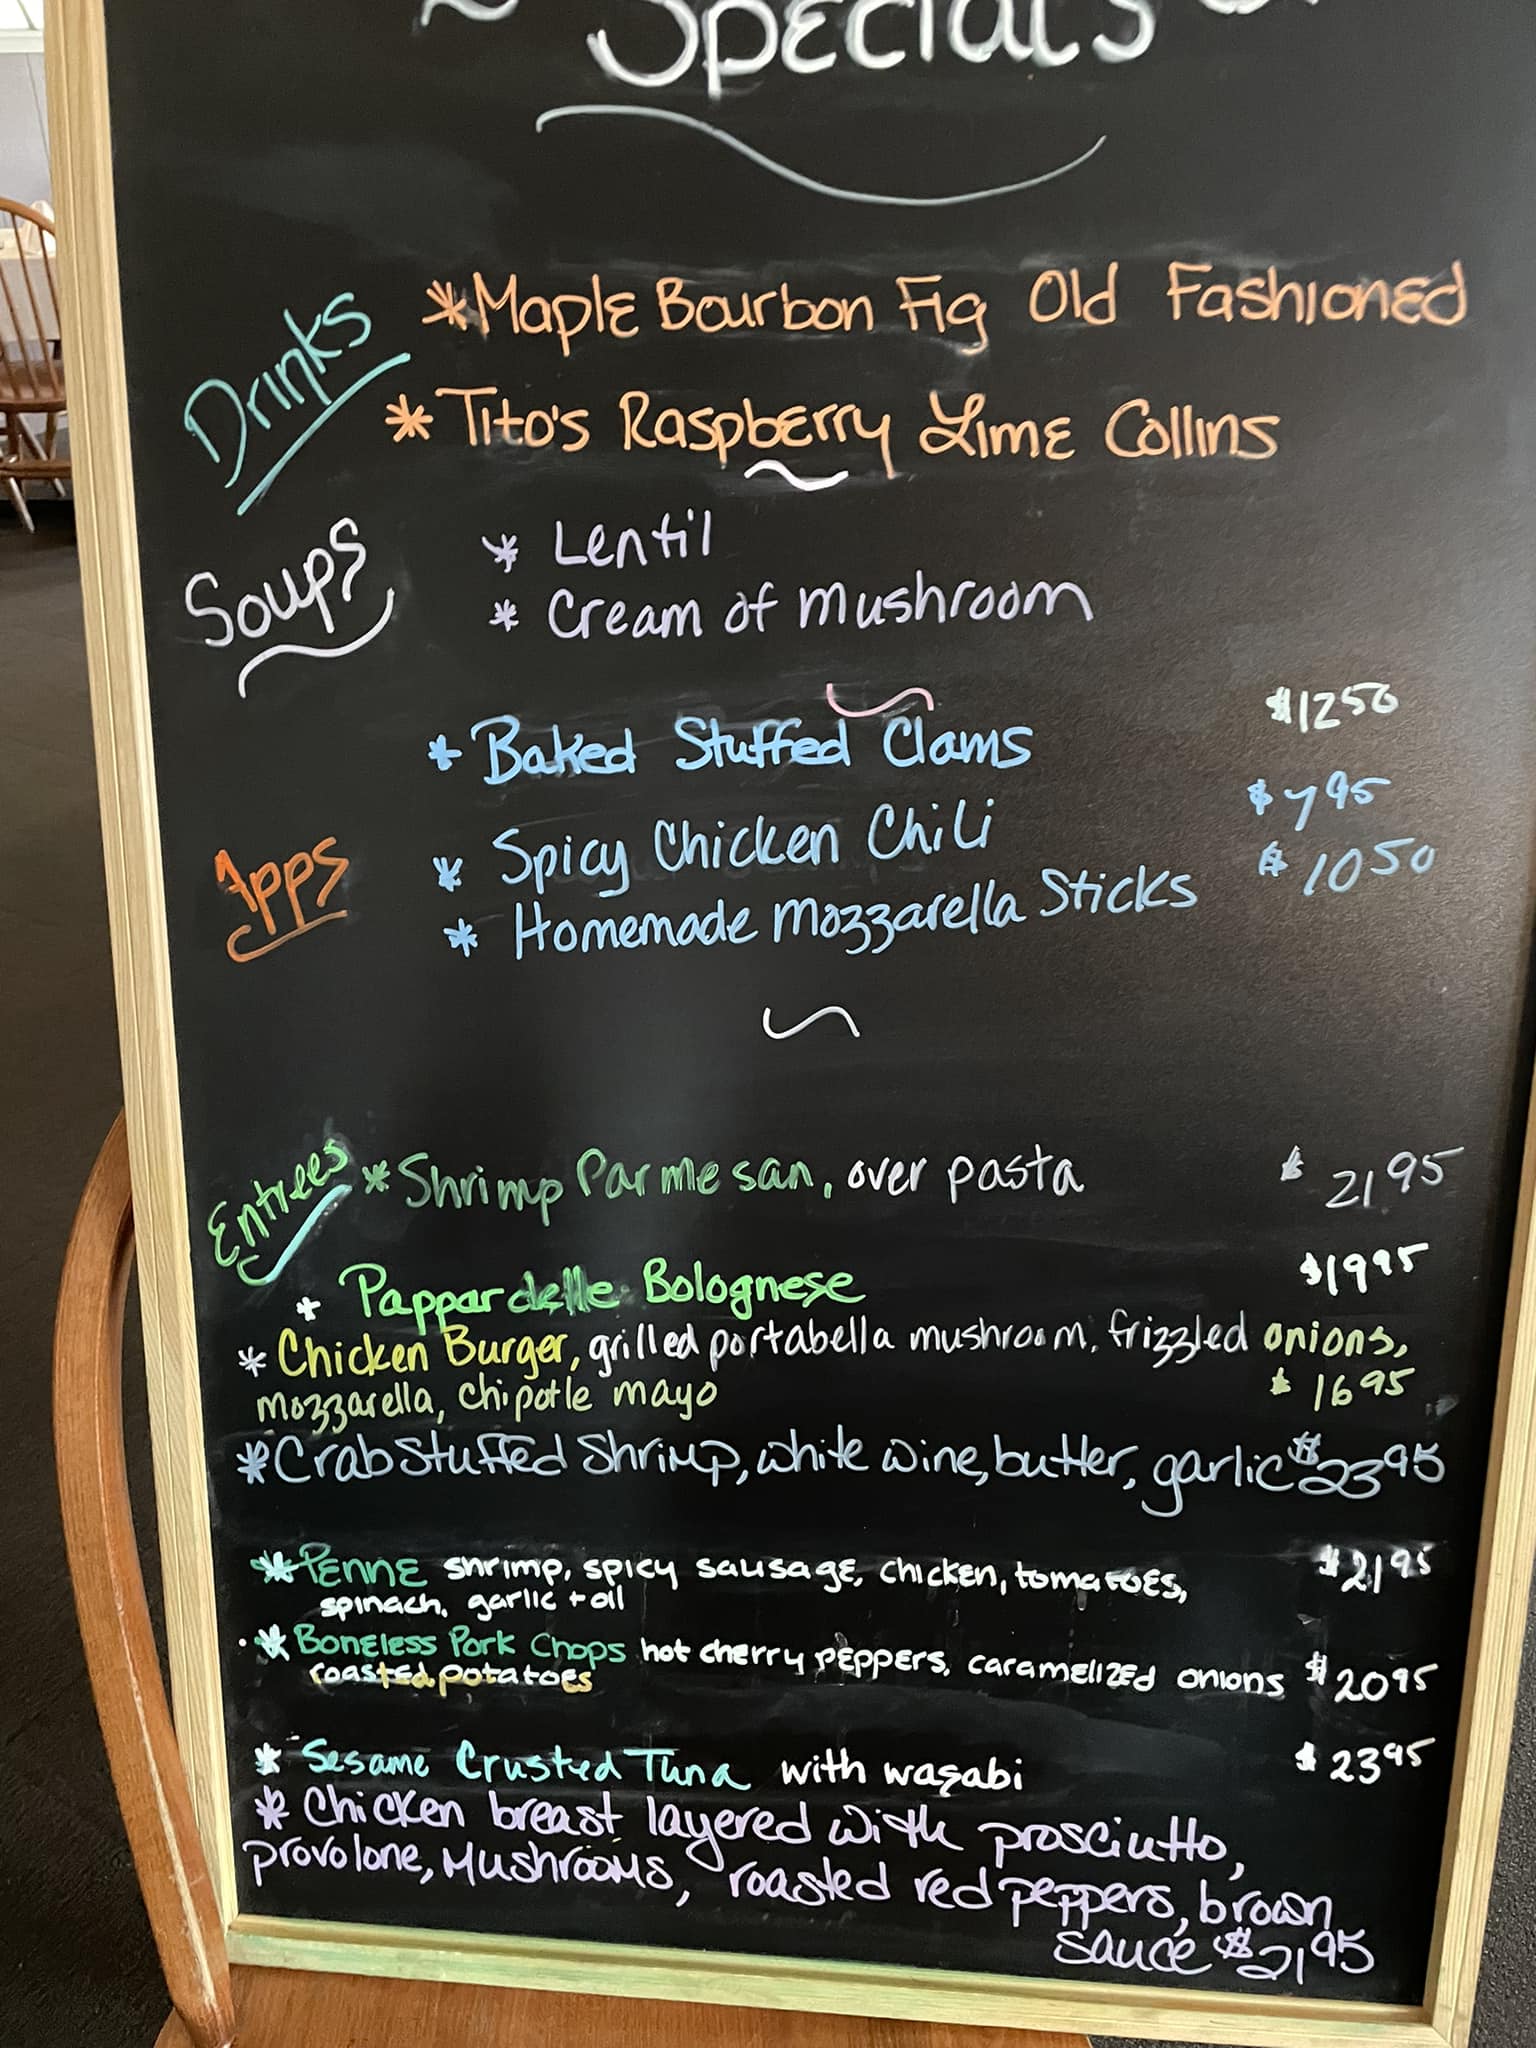 ~ Specials ~
Drinks
*Maple Bourbon Fig Old Fashioned
*Tito's Raspberry Lime Collins
Soups
* Lentil
* Cream of mushroom
Apps
* Baked Stuffed Clams $12 50
* Spicy Chicken Chili $7 95
* Homemade Mozzarella Sticks $10 50
Entrees
*Shrimp Parmesan, over pasta $21 95
* Pappardelle Bolognese $19 95
* Chicken Burger, grilled portabella mushroom, frizzled onions,
mozzarella, chipotle mayo $16 95
*Crab Stuffed Shrimp, white wine, butter, garlic $23 95
*Penne shrimp, spicy sausage, chicken, tomatoes, $21 95
spinach, garlic + oil
*Boneless Pork Chops hot cherry peppers, caramelized onions $20 95
roasted potatoes
* Sesame Crusted Tuna with wasabi $23 95
* Chicken breast layered with prosciutto,
provolone, Mushrooms, roasted red peppers, brown
sauce $21 95